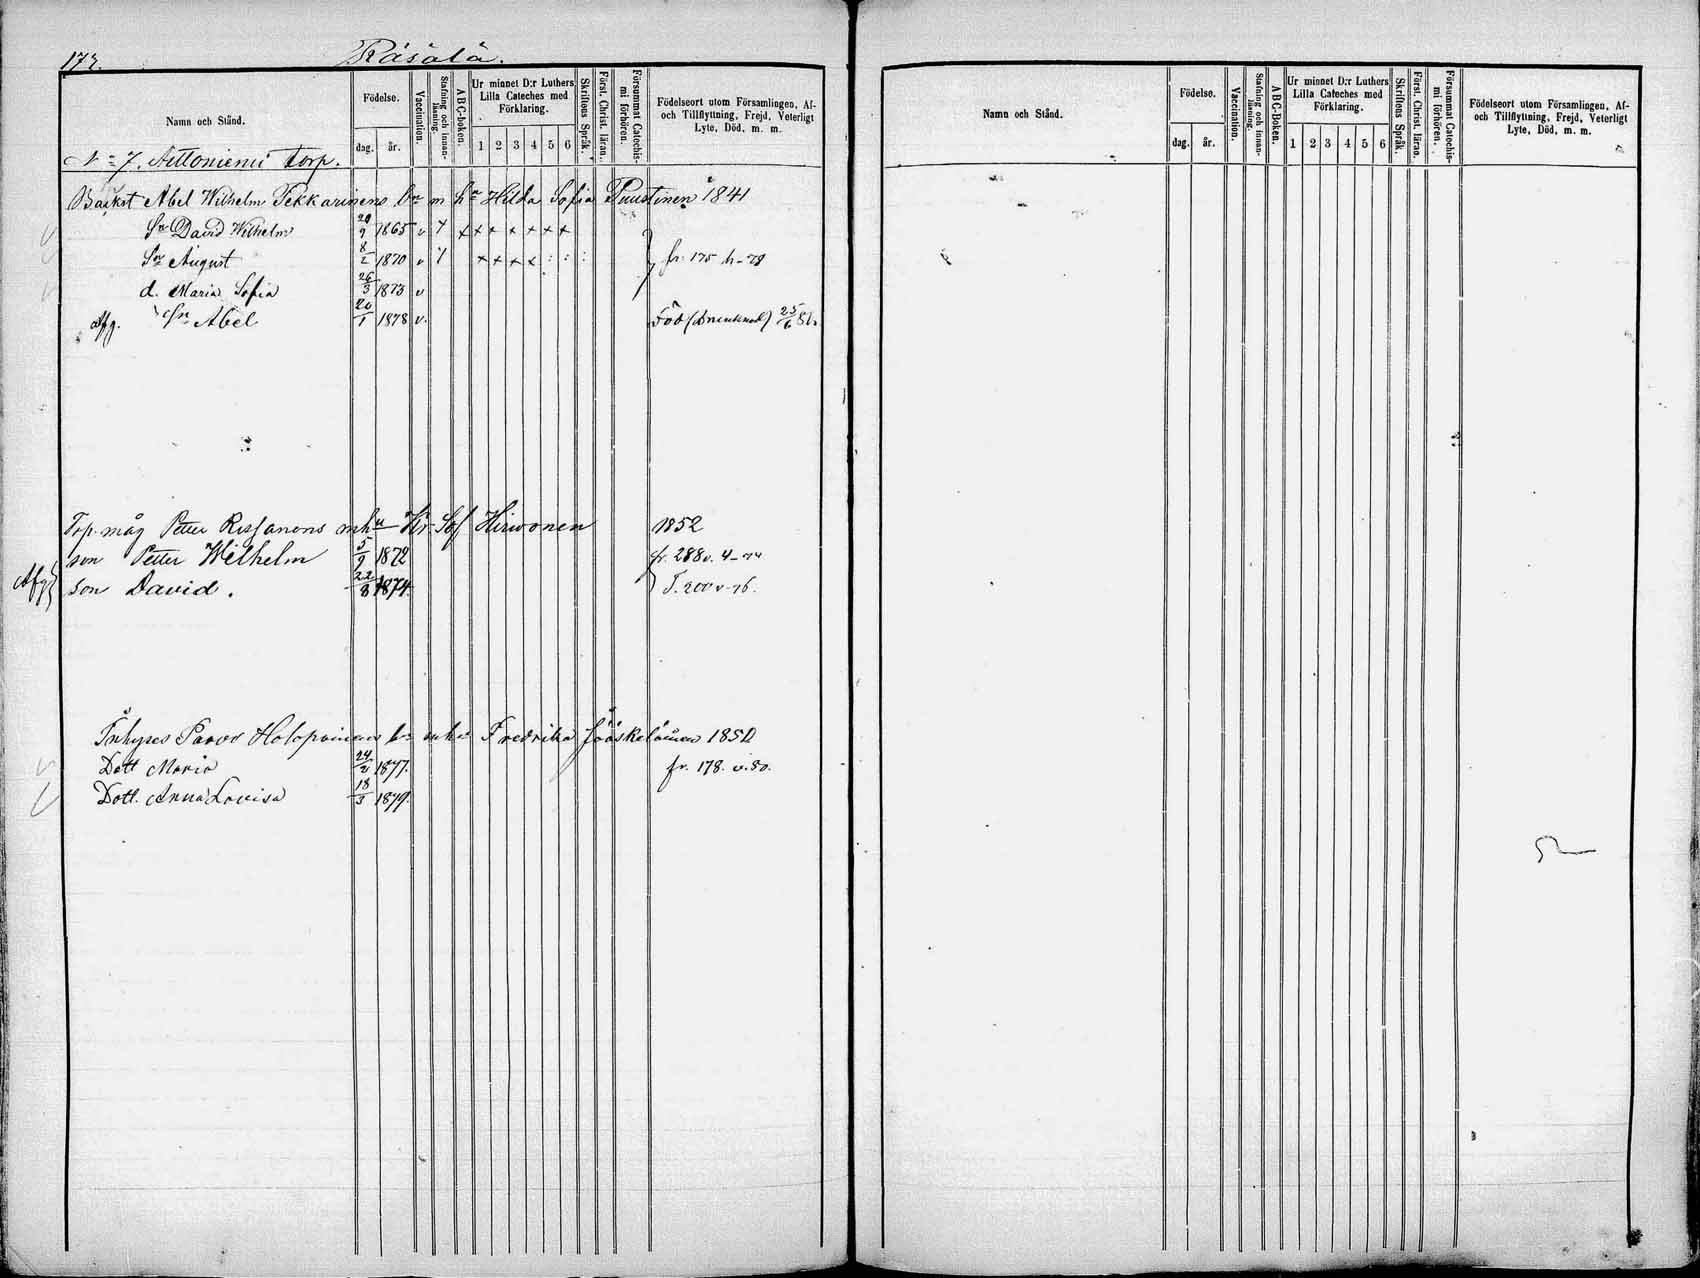 172. Räsälä.
Namn och Stånd.
Födelse.
dag. år.
Vaccination.
Stafning och innan-
läsning.
ABC-boken.
Ur minnet D:r Luthers
Lilla Cateches med
Förklaring.
1 2 3 4 5 6
Skriftens Språk.
Först. Christ. läran.
Försummat Catechis-
mi förhören.
Födelseort utom Församlingen, Af-
och Tillflyttning, Frejd, Veterligt
Lyte, Död. m. m.
N:o 7. torp.
Abel Wilhelm Pekkarinens m Hilda Sofia Puustinen 1841
Sn David Wilhelm 29/9 1865 v
Sn August 8/2 1870 v fr. 175 h-78
d. Maria Sofia 26/3 1873 v
Afg. Sn Abel 20/1 1878 v. Död 25/6
måg Petter Rissanens mhu Kr Sof Hirwonen 1852
son Petter Wilhelm 5/9 1872 fr. 288 v. 4-74
Afg son David. 22/8 1874. T. 200 v-76.
Inhyses Paavo Holopainens Fredrika Jääskeläinen 1852
Dott Maria 24/2 1877. fr. 178. v. 80.
Dott. Anna Lovisa 18/3 1879.
Namn och Stånd.
Födelse.
dag. år.
Vaccination.
Stafning och innan-
läsning.
ABC-Boken.
Ur minnet D:r Luthers
Lilla Cateches med
Förklaring.
1 2 3 4 5 6
Skriftens Språk.
Först. Christ. läran.
Försummat Catechis-
mi förhören.
Födelseort utom Församlingen, Af-
och Tillflyttning, Frejd, Veterligt
Lyte, Död, m. m.